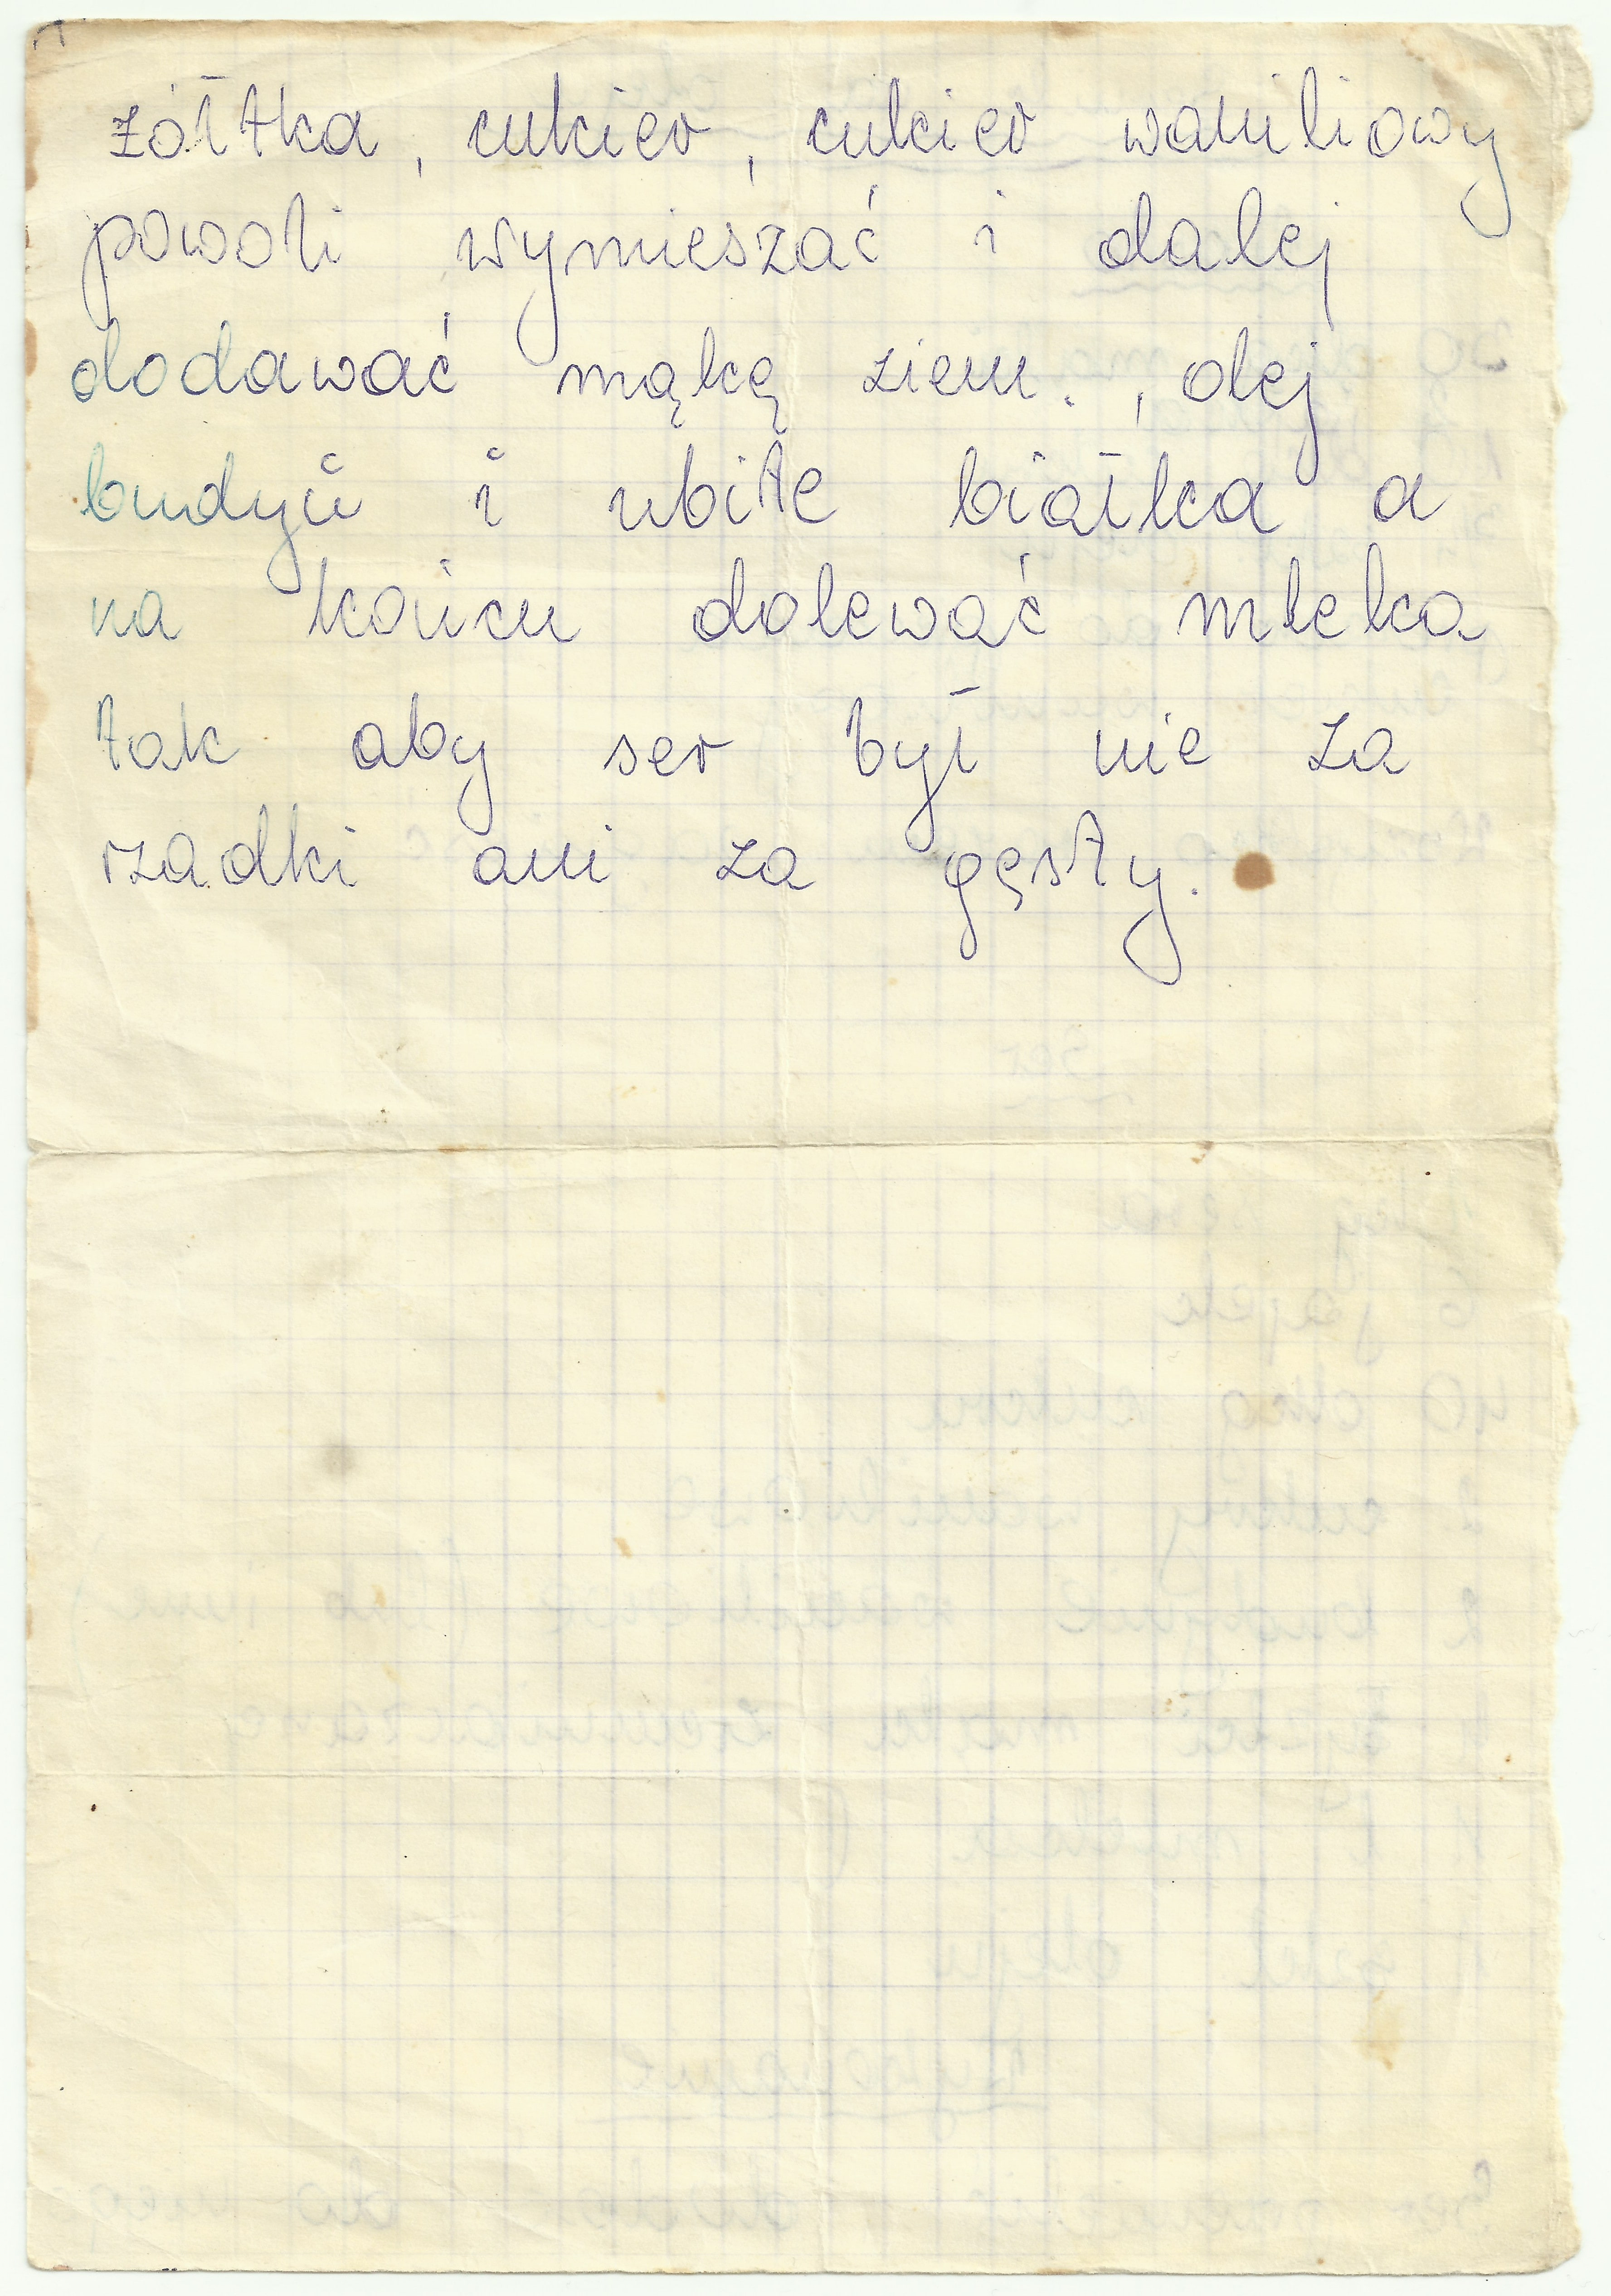 żółtka, cukier, cukier waniliowy
powoli wymieszać i dalej
dodawać mąkę ziem., olej
budyń i ubite białka a
na końcu dolewać mleka
tak aby ser był nie za
rzadki ani za gęsty.